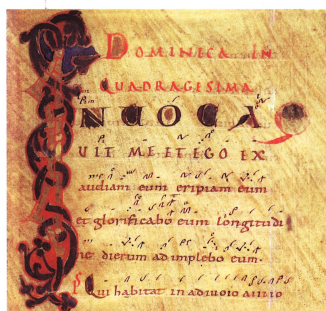 DOMINICA IN
QUADRAGESIMA
INUOCA
UIT ME ET EGO EX
audiam eum eripiam eum
et glorificabo eum longitudi
ne dierum adimplebo eum.
Qui habitat in adiutorio